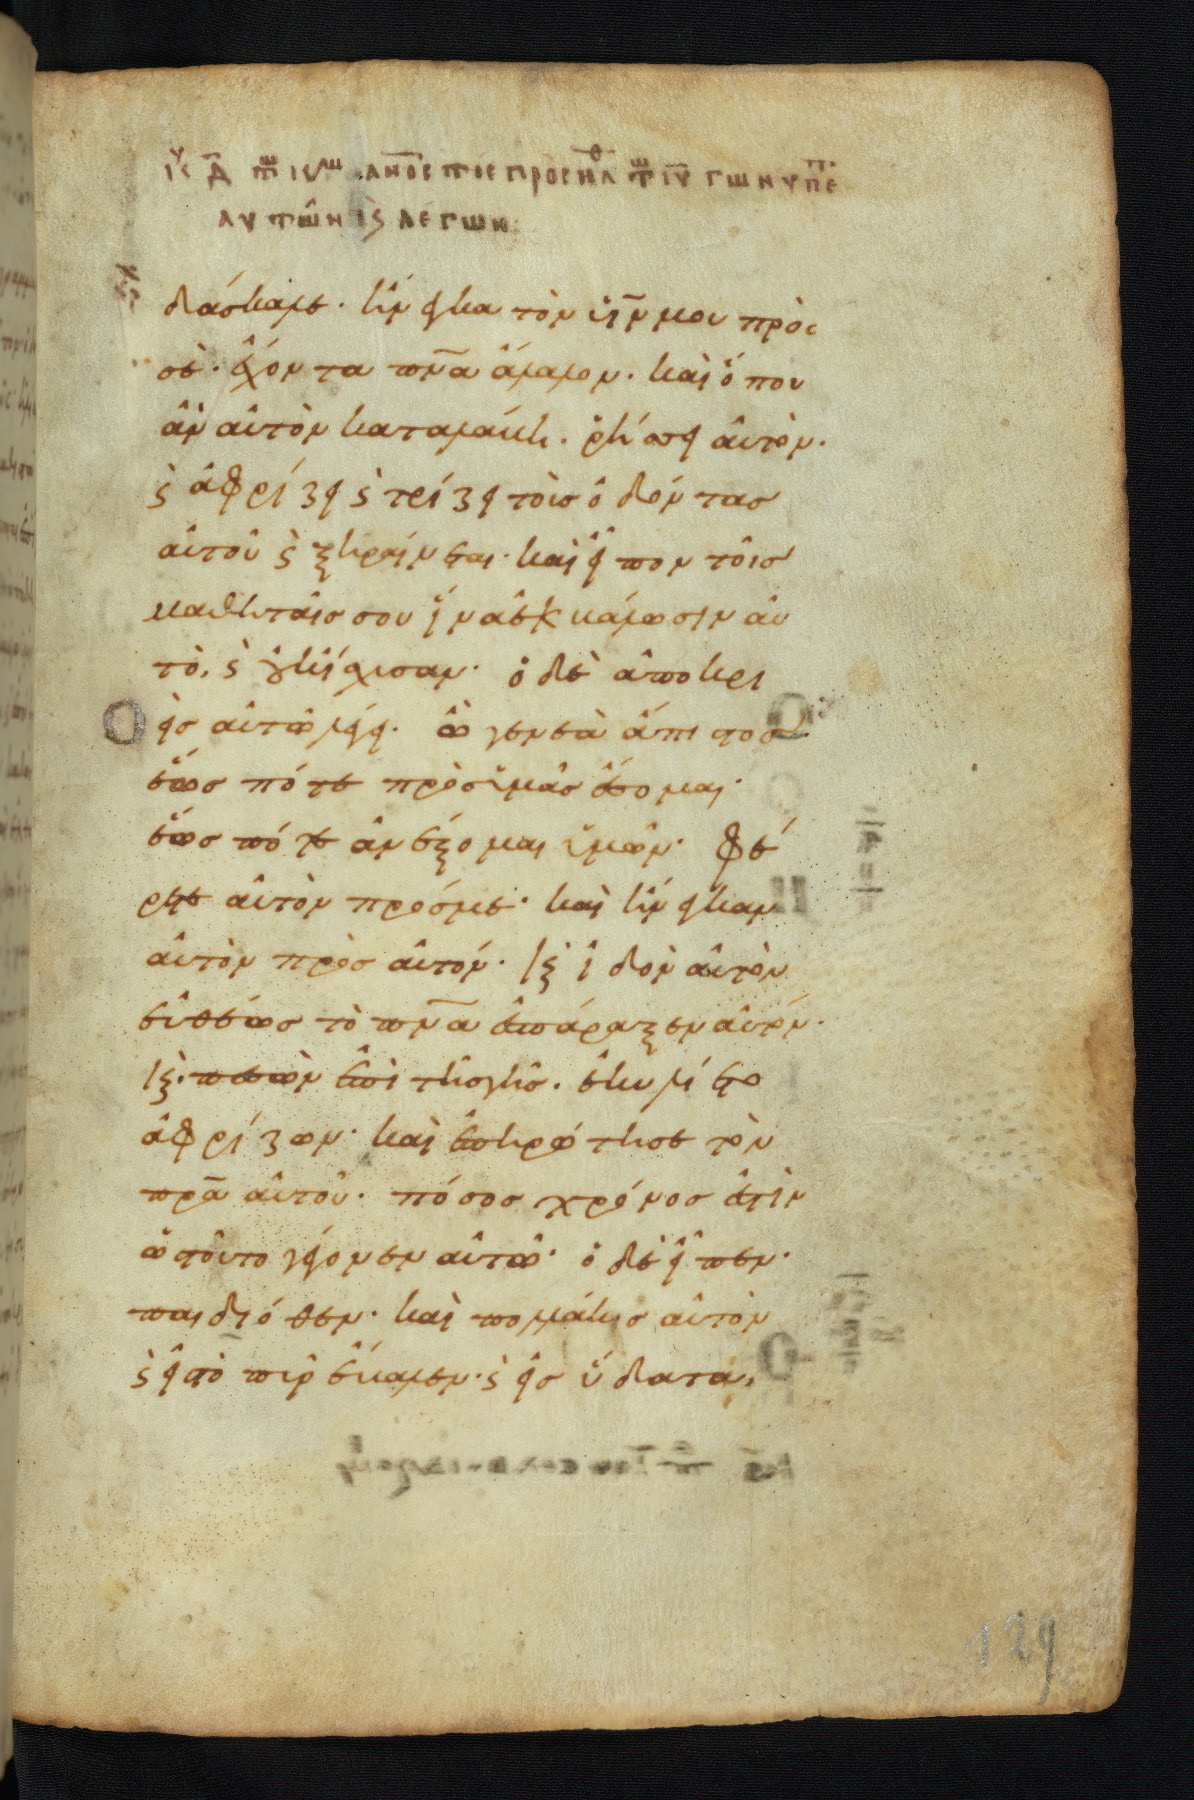 διδάσκαλε· ἤνεγκα τὸν υἱόν μου πρὸς
σὲ· ἔχοντα πν̅α ἄλαλον· καὶ ὅπου
ἂν αὐτὸν καταλάβη· ῥήσσει αὐτὸν·
ϛ̀ ἀφρίζει ϛ̀ τρίζει τοὺσ ὀδόντας
αὐτοῦ ϛ̀ ξηραίνεται· καὶ εἶπον τοῖσ
μαθηταῖσ σου ἵνα ἐκβάλωσιν αὐ
τὸ, ϛ̀ οὐκ ἴσχυσαν· ὁ δὲ ἀποκρι
θεὶσ αὐτῶ λέγει· ὦ γενεὰ ἄπιστοσ·
ἕωσ πότε πρὸσ ὑμᾶσ ἔσομαι·
ἕωσ πότε ἀνέξομαι ὑμῶν· φέ
ρετε αὐτὸν πρόσμε· καὶ ἤνεγκαν
αὐτὸν πρὸσ αὐτόν· κϛ̀ ἰδὸν αὐτὸν
εὐθέωσ τὸ πν̅α ἐσπάραξεν αὐτόν·
κϛ̀· πεσὼν ἐπὶ τῆσ γῆσ· ἐκυλίετο
ἀφρίζων· καὶ ἐπηρώτησε τὸν
πρ̅α αὐτοῦ· πόσοσ χρόνοσ ἐστὶν
ὡσ τοῦτο γέγονεν αὐτῶ· ὁ δὲ εἶπεν·
παιδιόθεν· καὶ πολλάκισ αὐτὸν
ϛ̀ εἰσ τὸ πῦρ ἔβαλεν· ϛ̀ εἰσ ὕδατα,
129